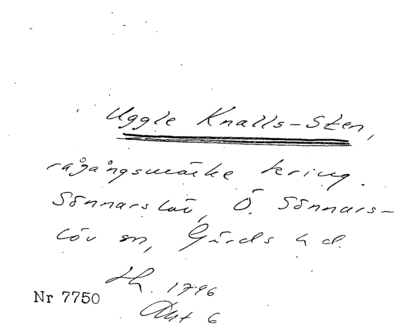 Uggle Knalls-Sten,
rågångsmärke kring
Sönnarslöv, Ö. Sönnars-
löv sn, Gärds hd.
Lh. 1796
Akt 6
Nr 7750